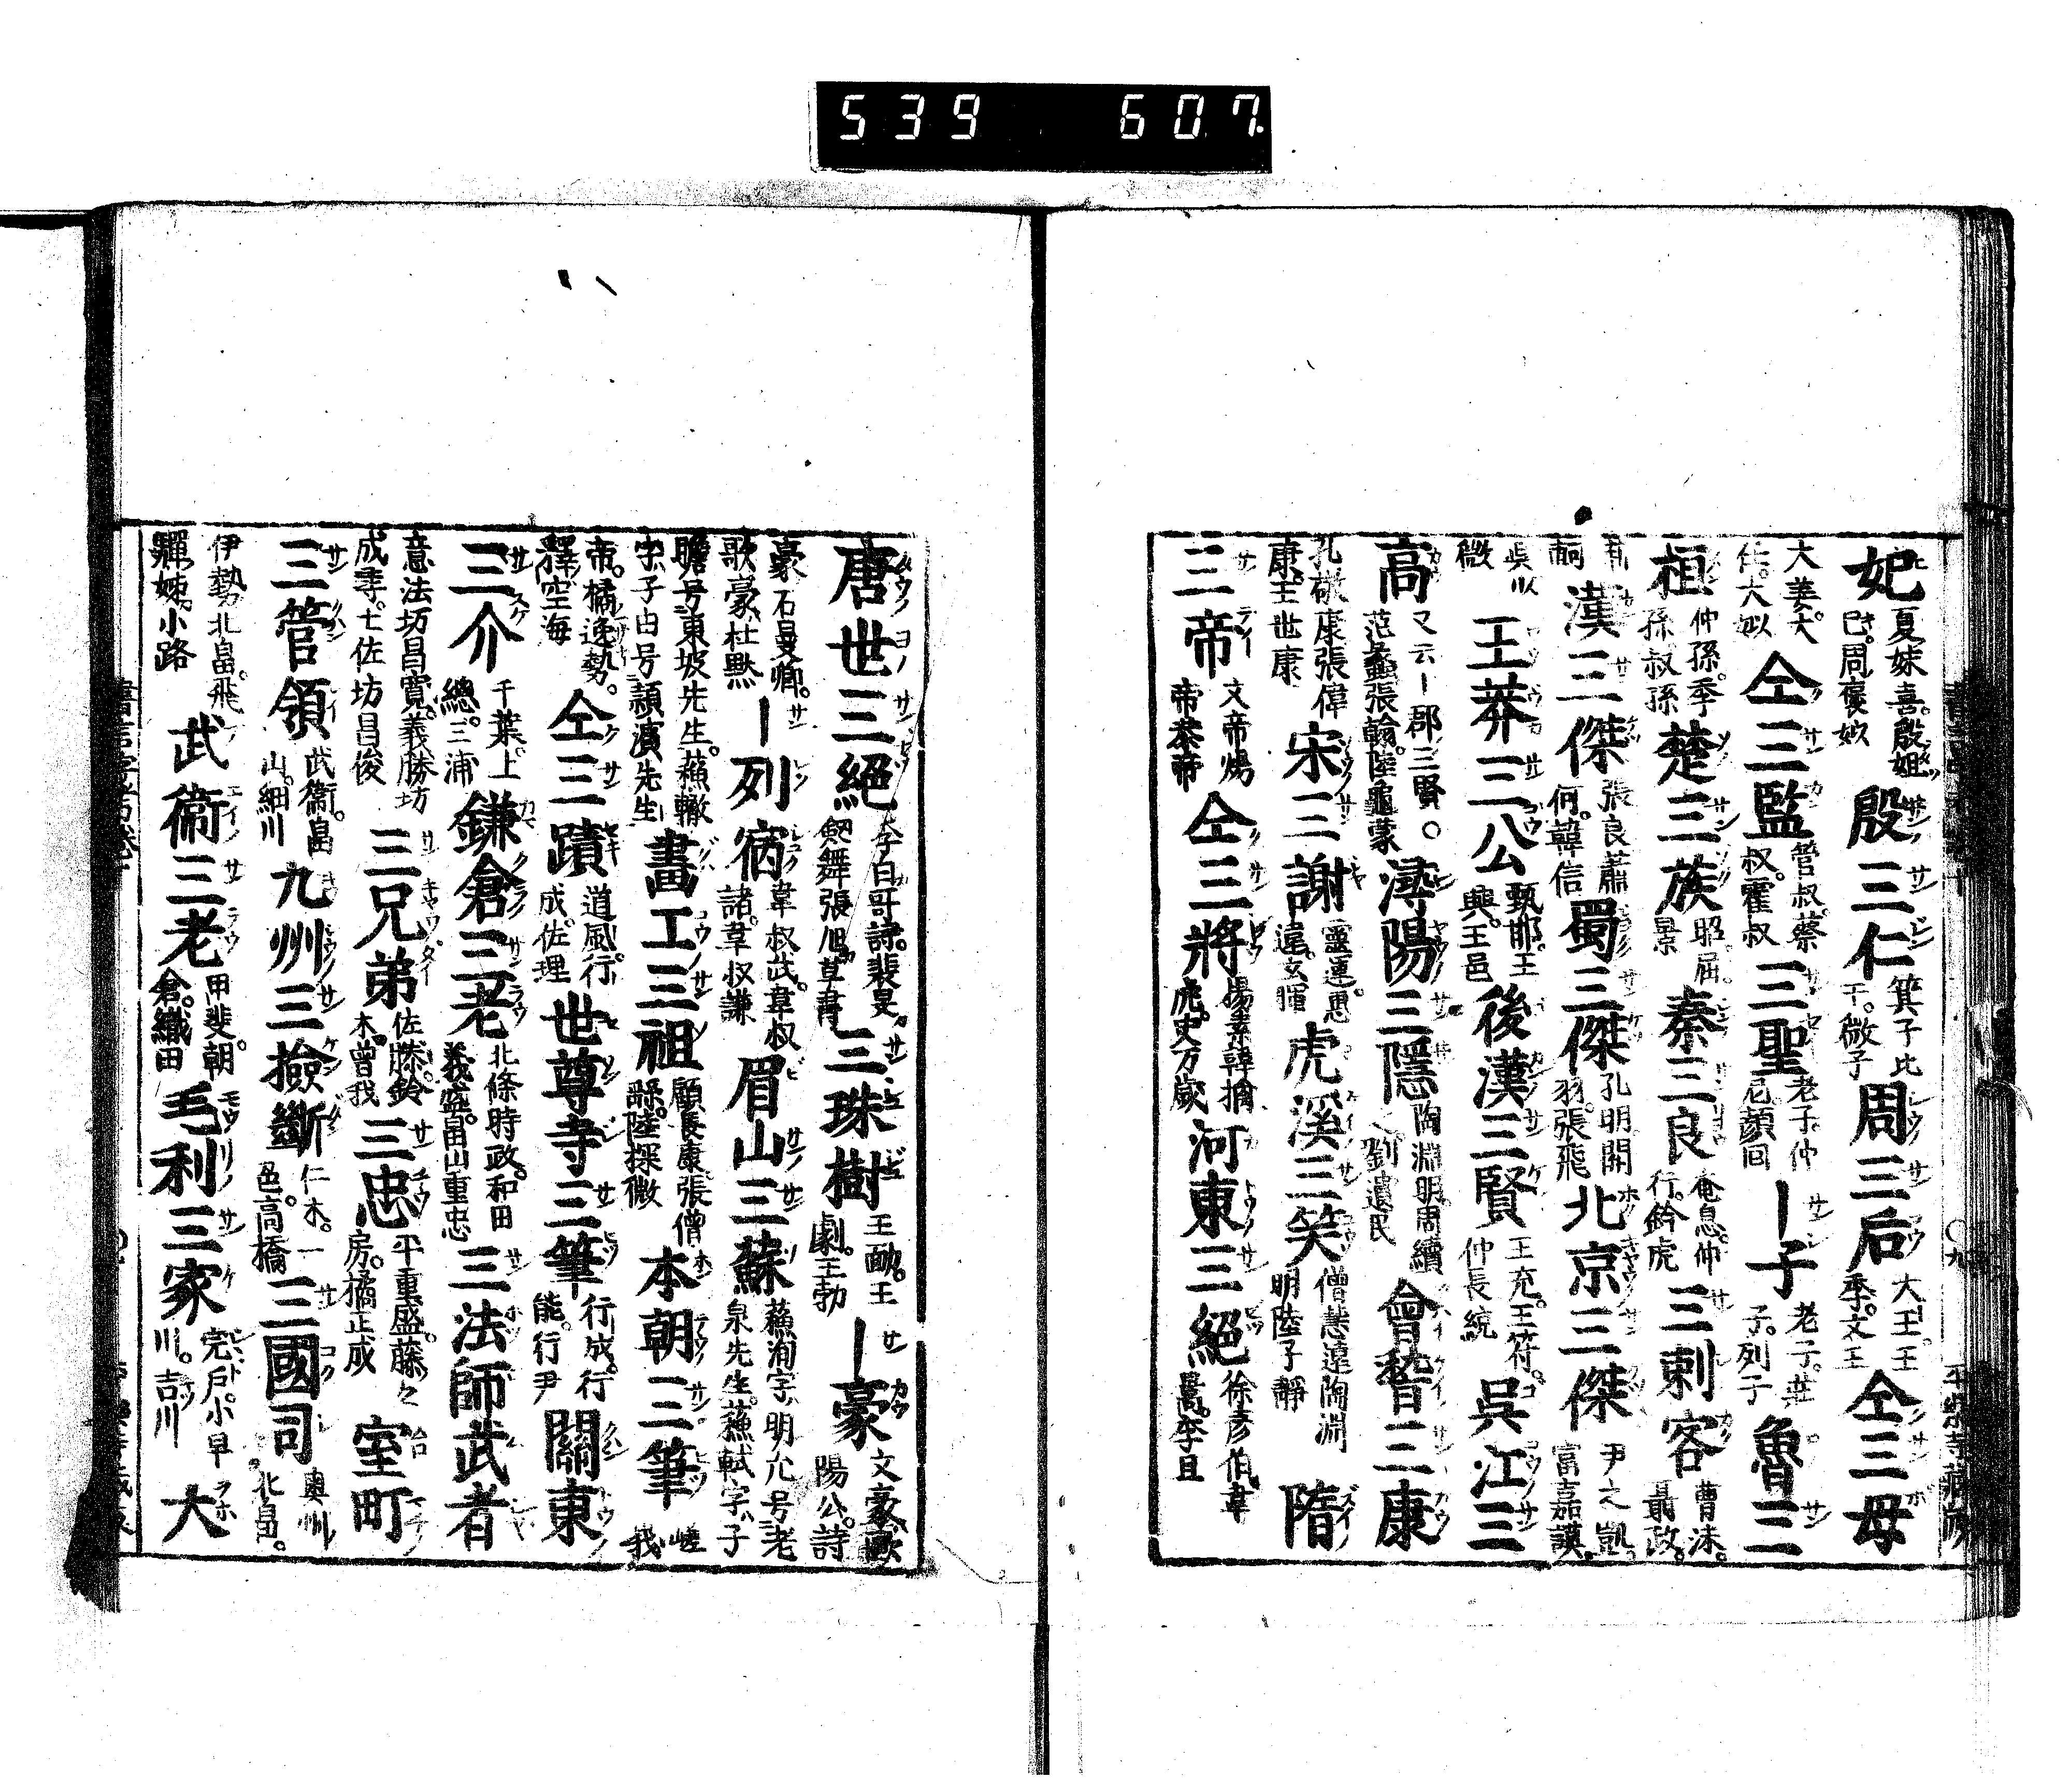 539 607.
妃 夏妹喜。殷妲己。周褒姒 殷三仁 箕子比干。微子 周三后 大王。王季。文王 仝三母
大姜。大任。大姒 仝三監 管叔。蔡叔。霍叔 三聖 老子。仲尼顔回 ｜子 老子。莊子。列子 魯三
桓 仲孫。季孫叔孫 楚三族 昭。屈。景 秦三良 奄息。仲行。鈴虎 三刺客 曹沫。聶政。
漢三傑 張良蕭何。韓信 蜀三傑 孔明關羽。張飛 北京三傑 尹之凱。富嘉謨。
吳以微 王莽三公 甄邯。王興。王邑 後漢三賢 王充。王符。仲長統 吳江三
高 又云｜郡三賢。○范蠡張翰。陸龜蒙 潯陽三隱 陶淵明。周續之劉遺民 會稽三康
孔敬康張偉康。王世康 宋三謝 靈運。惠遠。玄暉 虎溪三笑 僧慧遠陶淵明陸子靜 隋
三帝 文帝煬帝恭帝 仝三將 楊素韓擒虎。史万歲 河東三絕 徐彥伯。韋暠。李亘
唐世三絕 李白哥詩。裴旻劔舞張旭草書 三珠樹 王勔。王勮。王勃 ｜豪 文豪歐陽公。詩
豪石曼卿。歌豪杜黙 ｜列 㾛 韋叔武。韋叔諸。韋叔謙 眉山三蘇 蘓洵字明允号老泉先生。蘓軾字子
瞻号東坡先生。蘓轍字子由号潁濱先生 畵工三祖 顧長康張僧繇。陸探微 本朝三筆 嵯我
帝。橘逸勢。釋空海 仝三蹟 道風。行成。佐理 世尊寺三筆 行成。行能。行尹 關東
三介 千葉。上總。三浦 鎌倉三老 北條時政。和田義盛。畠山重忠 三法師武者
意法坊昌寛。義勝坊成尋。土佐坊昌俊 三兄弟 佐藤。鈴木。曾我 三忠 平重盛。藤房。橘正成 室町
三管領 武衞。畠山。細川 九州三撿斷 仁木。一色。高橋 三國司 奥州北畠。
伊勢北畠。飛驒姉小路 武衞三老 甲斐。朝倉。織田 毛利三家 完戶。小早川。吉川 大